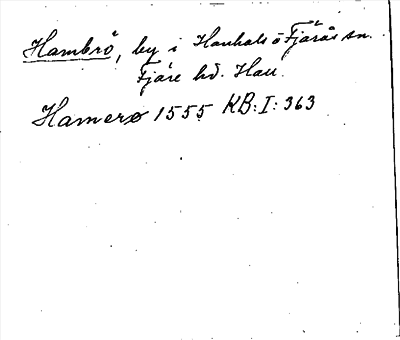 Hambrö, by i Hanhals o Fjärås sn.
Fjäre hd. Hall.
Hamerø 1555 KB:I:363